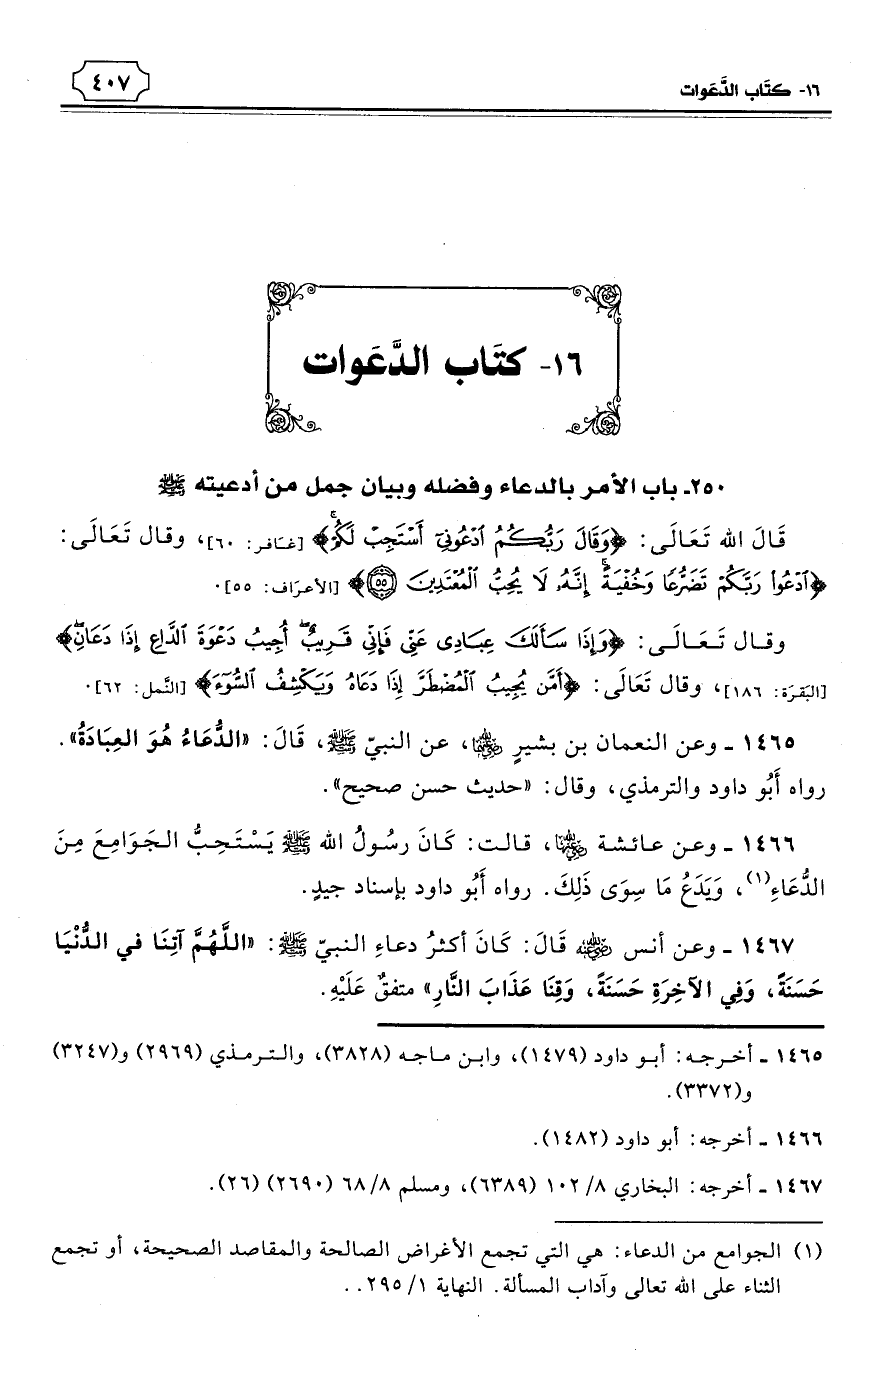 ١٦- كتَاب الدَّعَوات
٤٠٧
١٦- كتَاب الدَّعَوات
٢٥٠ـ باب الأمر بالدعاء وفضله وبيان جمل من أدعيته ﷺ
قَالَ الله تَعَالَى: ﴿وَقَالَ رَبُّكُمُ ٱدْعُونِيٓ أَسْتَجِبْ لَكُمْ﴾ [غافر: ٦٠]، وقال تَعَالَى:
﴿ٱدْعُوا۟ رَبَّكُمْ تَضَرُّعًا وَخُفْيَةً ۚ إِنَّهُۥ لَا يُحِبُّ ٱلْمُعْتَدِينَ ٥٥﴾ [الأعرَاف: ٥٥].
وقال تَعَالَى: ﴿وَإِذَا سَأَلَكَ عِبَادِى عَنِّى فَإِنِّى قَرِيبٌ ۖ أُجِيبُ دَعْوَةَ ٱلدَّاعِ إِذَا دَعَانِ ۖ﴾
[البَقَرَة: ١٨٦]، وقال تَعَالَى: ﴿أَمَّن يُجِيبُ ٱلْمُضْطَرَّ إِذَا دَعَاهُ وَيَكْشِفُ ٱلسُّوٓءَ﴾ [النَّمل: ٦٢].
١٤٦٥ ـ وعن النعمان بن بشيرٍ رضي الله عنهما، عن النبيّ ﷺ، قَالَ: «الدُّعَاءُ هُوَ العِبَادَةُ».
رواه أَبُو داود والترمذي، وقال: «حديث حسن صحيح».
١٤٦٦ ـ وعن عائشة رضي الله عنها، قالت: كَانَ رسُولُ الله ﷺ يَسْتَحِبُّ الجَوَامِعَ مِنَ
الدُّعَاءِ(١)، وَيَدَعُ مَا سِوَى ذَلِكَ. رواه أَبُو داود بإسناد جيدٍ.
١٤٦٧ ـ وعن أنس رضي الله عنه قَالَ: كَانَ أكثرُ دعاءِ النبيّ ﷺ: «اللَّهُمَّ آتِنَا في الدُّنْيَا
حَسَنَةً، وَفِي الآخِرَةِ حَسَنَةً، وَقِنَا عَذَابَ النَّارِ» متفقٌ عَلَيْهِ.
١٤٦٥ ـ أخرجه: أبو داود (١٤٧٩)، وابن ماجه (٣٨٢٨)، والترمذي (٢٩٦٩) و(٣٢٤٧)
و(٣٣٧٢).
١٤٦٦ ـ أخرجه: أبو داود (١٤٨٢).
١٤٦٧ ـ أخرجه: البخاري ٨/ ١٠٢ (٦٣٨٩)، ومسلم ٨/ ٦٨ (٢٦٩٠) (٢٦).
(١) الجوامع من الدعاء: هي التي تجمع الأغراض الصالحة والمقاصد الصحيحة، أو تجمع
الثناء على الله تعالى وآداب المسألة. النهاية ١/ ٢٩٥..